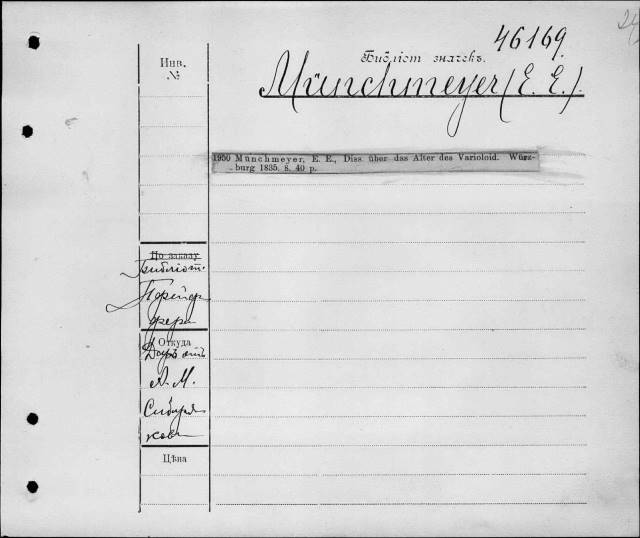 46169
Библіот значекъ.
Инв.
№
Münchmeyer (E. E.).
1950 Münchmeyer, E. E., Diss. über das Alter des Varioloid. Würz-
burg 1835. 8. 40 p.
По заказу
Библіот.
Откуда
Даръ отъ
А. М.
Сибиря
кова
Цѣна